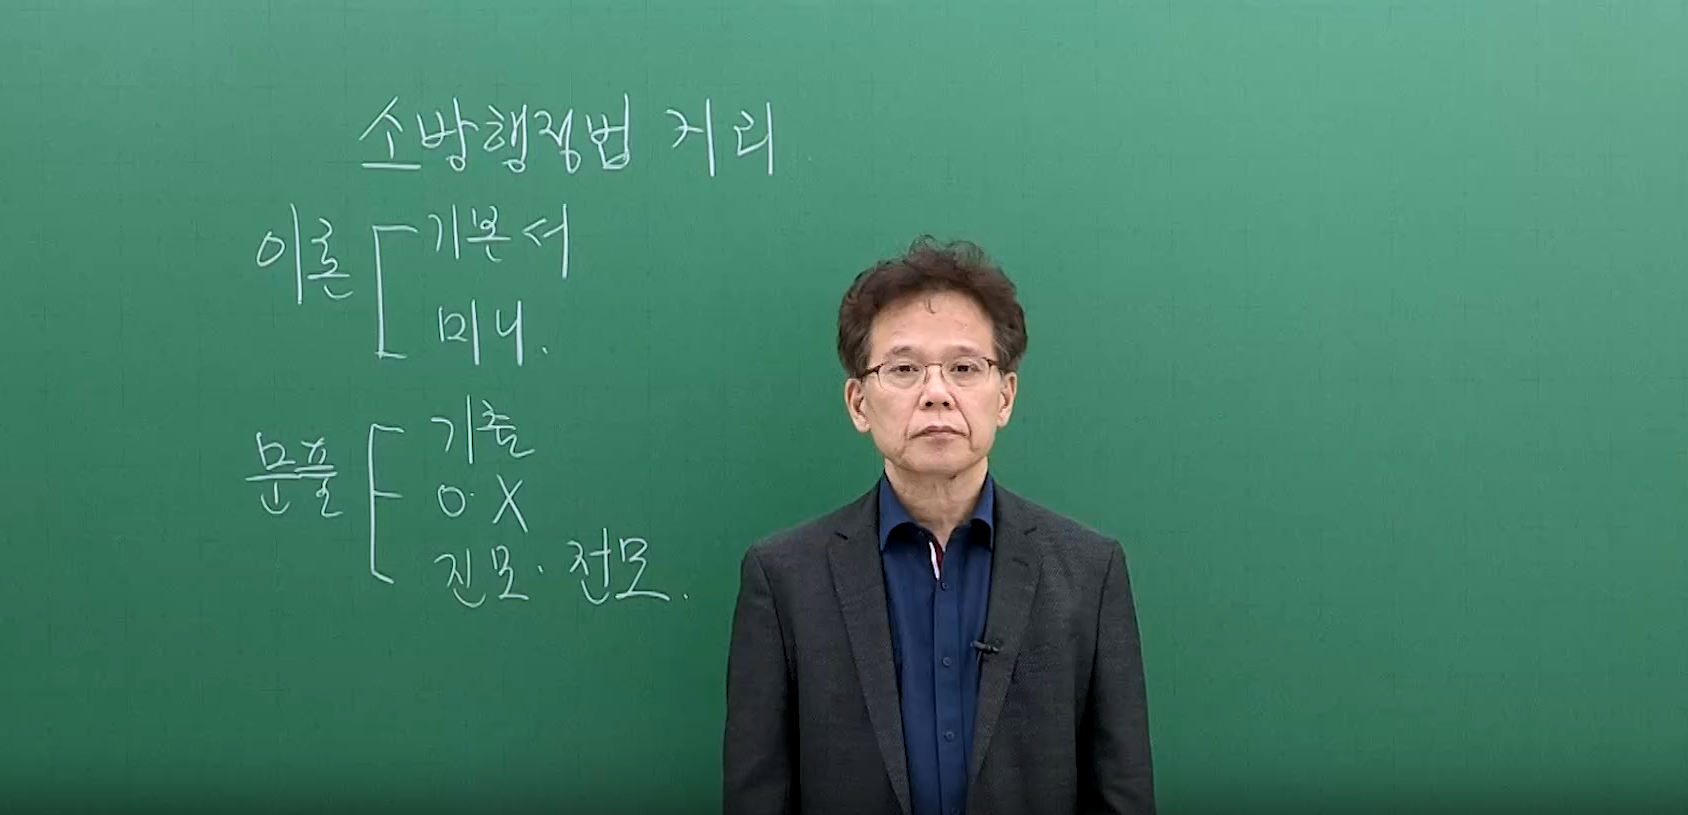 소방행정법 커리
이론
기본서
미니.
문풀
기출
O·X
진모·전모.